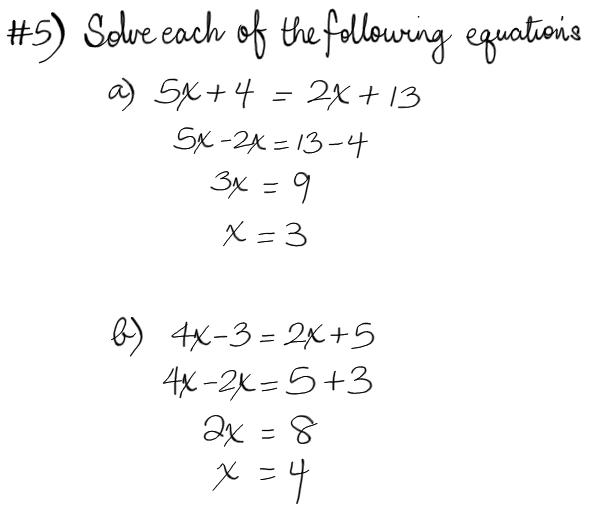 #5) Solve each of the following equations
a) 5x + 4 = 2x + 13
5x - 2x = 13 - 4
3x = 9
x = 3
b) 4x - 3 = 2x + 5
4x - 2x = 5 + 3
2x = 8
x = 4